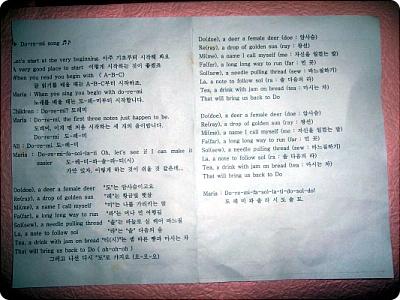 Do-re-mi song
Let's start at the very beginning. 아주 기초부터 시작해 봐요
A very good place to start 이렇게 시작하는 것이 좋겠죠
When you read you begin with (A-B-C)
글 읽기를 배울 때는 A-B-C부터 시작하죠.
Maria : When you sing you begin with do-re-mi
노래를 배울 때는 도-레-미부터 시작합니다.
Children : Do-re-mi? 도레미
Maria : Do-re-mi, the first three notes just happen to be.
도레미, 이게 맨 처음 시작하는 세 개의 음이랍니다.
Do-re-mi 도레미
Do-re-mi 도-레-미
Maria : Do-re-mi-fa-sol-la-ti Oh, let's see if I can make it
easier 도-레-미-파-솔-라-(시)
가만 있자, 이렇게 하는 것이 쉬울 것 같은데...
Do(doe), a deer a female deer "도"는 암사슴이고요
Re(ray), a drop of golden sun "레"는 황금빛 햇살
Mi(me), a name I call myself "미"는 나를 가리키는 말
Fa(far), a long long way to run "파"는 머나 먼 여행길
Sol(sew), a needle pulling thread "솔"는 바늘로 실 꿰어 꿰느질
La, a note to follow sol "라"는 "솔" 다음의 음
Tea, a drink with jam on bread "티(시)"는 잼 바른 빵과 마시는 차
That will bring us back to Do (oh-oh-oh)
그러고 나선 다시 "도"로 가지요 (오-오-오)
Do(doe), a deer a female deer (doe : 암사슴)
Re(ray), a drop of golden sun (ray : 광선)
Mi(me), a name I call myself (me : 자신을 일컫는 말)
Fa(far), a long long way to run (far : 먼 곳)
Sol(sew), a needle pulling thread (sew : 바느질하기)
La, a note to follow sol (ra : 솔 다음의 라)
Tea, a drink with jam on bread (tea : 마시는 차)
That will bring us back to Do
Do(doe), a deer a female deer (doe : 암사슴)
Re(ray), a drop of golden sun (ray : 광선)
Mi(me), a name I call myself (me : 자신을 일컫는 말)
Fa(far), a long long way to run (far : 먼 곳)
Sol(sew), a needle pulling thread (new : 바느질하기)
La, a note to follow sol (ra : 솔 다음의 라)
Tea, a drink with jam on bread (tea : 마시는 차)
That will bring us back to Do
Maria : Do-re-mi-fa-sol-la-ti-do-sol-do!
도 레 미 파 솔 라 시 도 솔 도.